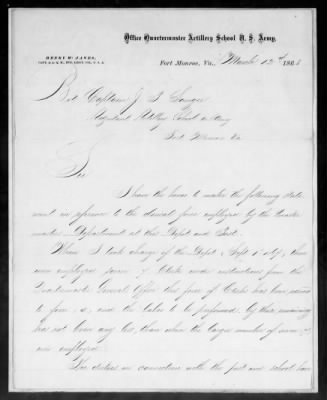 Office Quartermaster Artillery School U. S. Army,
HENRY W. JANES,
Fort Monroe, Va., March 12th 1868
Bvt Captain J. P. Sanger
Adjutant Artillery School U.S. Army
Fort Monroe Va
Sir
I have the honor to make the following state
ment in reference to the clerical force employed by the Quarter
masters Department at this Depot and Post.
When I took charge of the Depot, Sept 1" 1867, there
were employed seven, 7, Clerks under instructions from the
Quartermaster General's Office this force of Clerks has been reduced
to four, 4, and the labor to be performed by those remaining
has not been any less, than when the larger number of seven, 7,
were employed.
The duties in connection with the post and school have